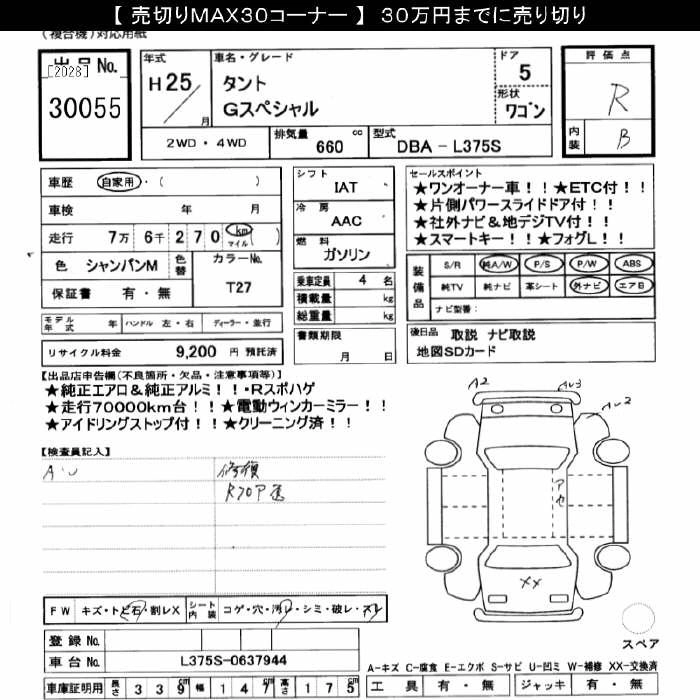 【 売切りMAX30コーナー 】 30万円までに売り切り
(複合機)対応用紙
出品 No.
[2028]
30055
年式
H 25 / 月
車名・グレード
タント
Gスペシャル
ドア
5
形状
ワゴン
評価点
R
内装
B
2WD ・ 4WD
排気量 660 cc
型式 DBA - L375S
車歴 自家用・( )
車検 年 月
走行 7万 6千 2 7 0 km マイル ( )
色 シャンパンM 色替 カラーNo.
保証書 有・無 T27
モデル年式 年 ハンドル 左・右 ディーラー・並行
リサイクル料金 9,200 円 預託済
シフト
IAT
冷房
AAC
燃料
ガソリン
乗車定員 4 名
積載量 kg
総重量 kg
書類期限
月 日
セールスポイント
★ワンオーナー車!!★ETC付!!
★片側パワースライドドア付!!
★社外ナビ&地デジTV付!!
★スマートキー!!★フォグL!!
装備品
S/R 純A/W P/S P/W ABS
純TV 純ナビ 革シート 外ナビ エアB
ナビ型番:
後日品 取説 ナビ取説
地図SDカード
【出品店申告欄(不良箇所・欠品・注意事項等)】
★純正エアロ&純正アルミ!!・Rスポハゲ
★走行70000km台!!★電動ウィンカーミラー!!
★アイドリングストップ付!!★クリーニング済!!
【検査員記入】
A・U 修復
A2
AU3
AU2
XX
FW キズ・トビ石・割レX シート内装 コゲ・穴・汚レ・シミ・破レ・スレ
登録 No.
車台 No. L375S-0637944
車庫証明用 長さ 3 3 9 cm 幅 1 4 7 cm 高さ 1 7 5 cm
スペア
A-キズ C-腐食 E-エクボ S-サビ U-凹ミ W-補修 XX-交換済
工具 有・無 ジャッキ 有・無